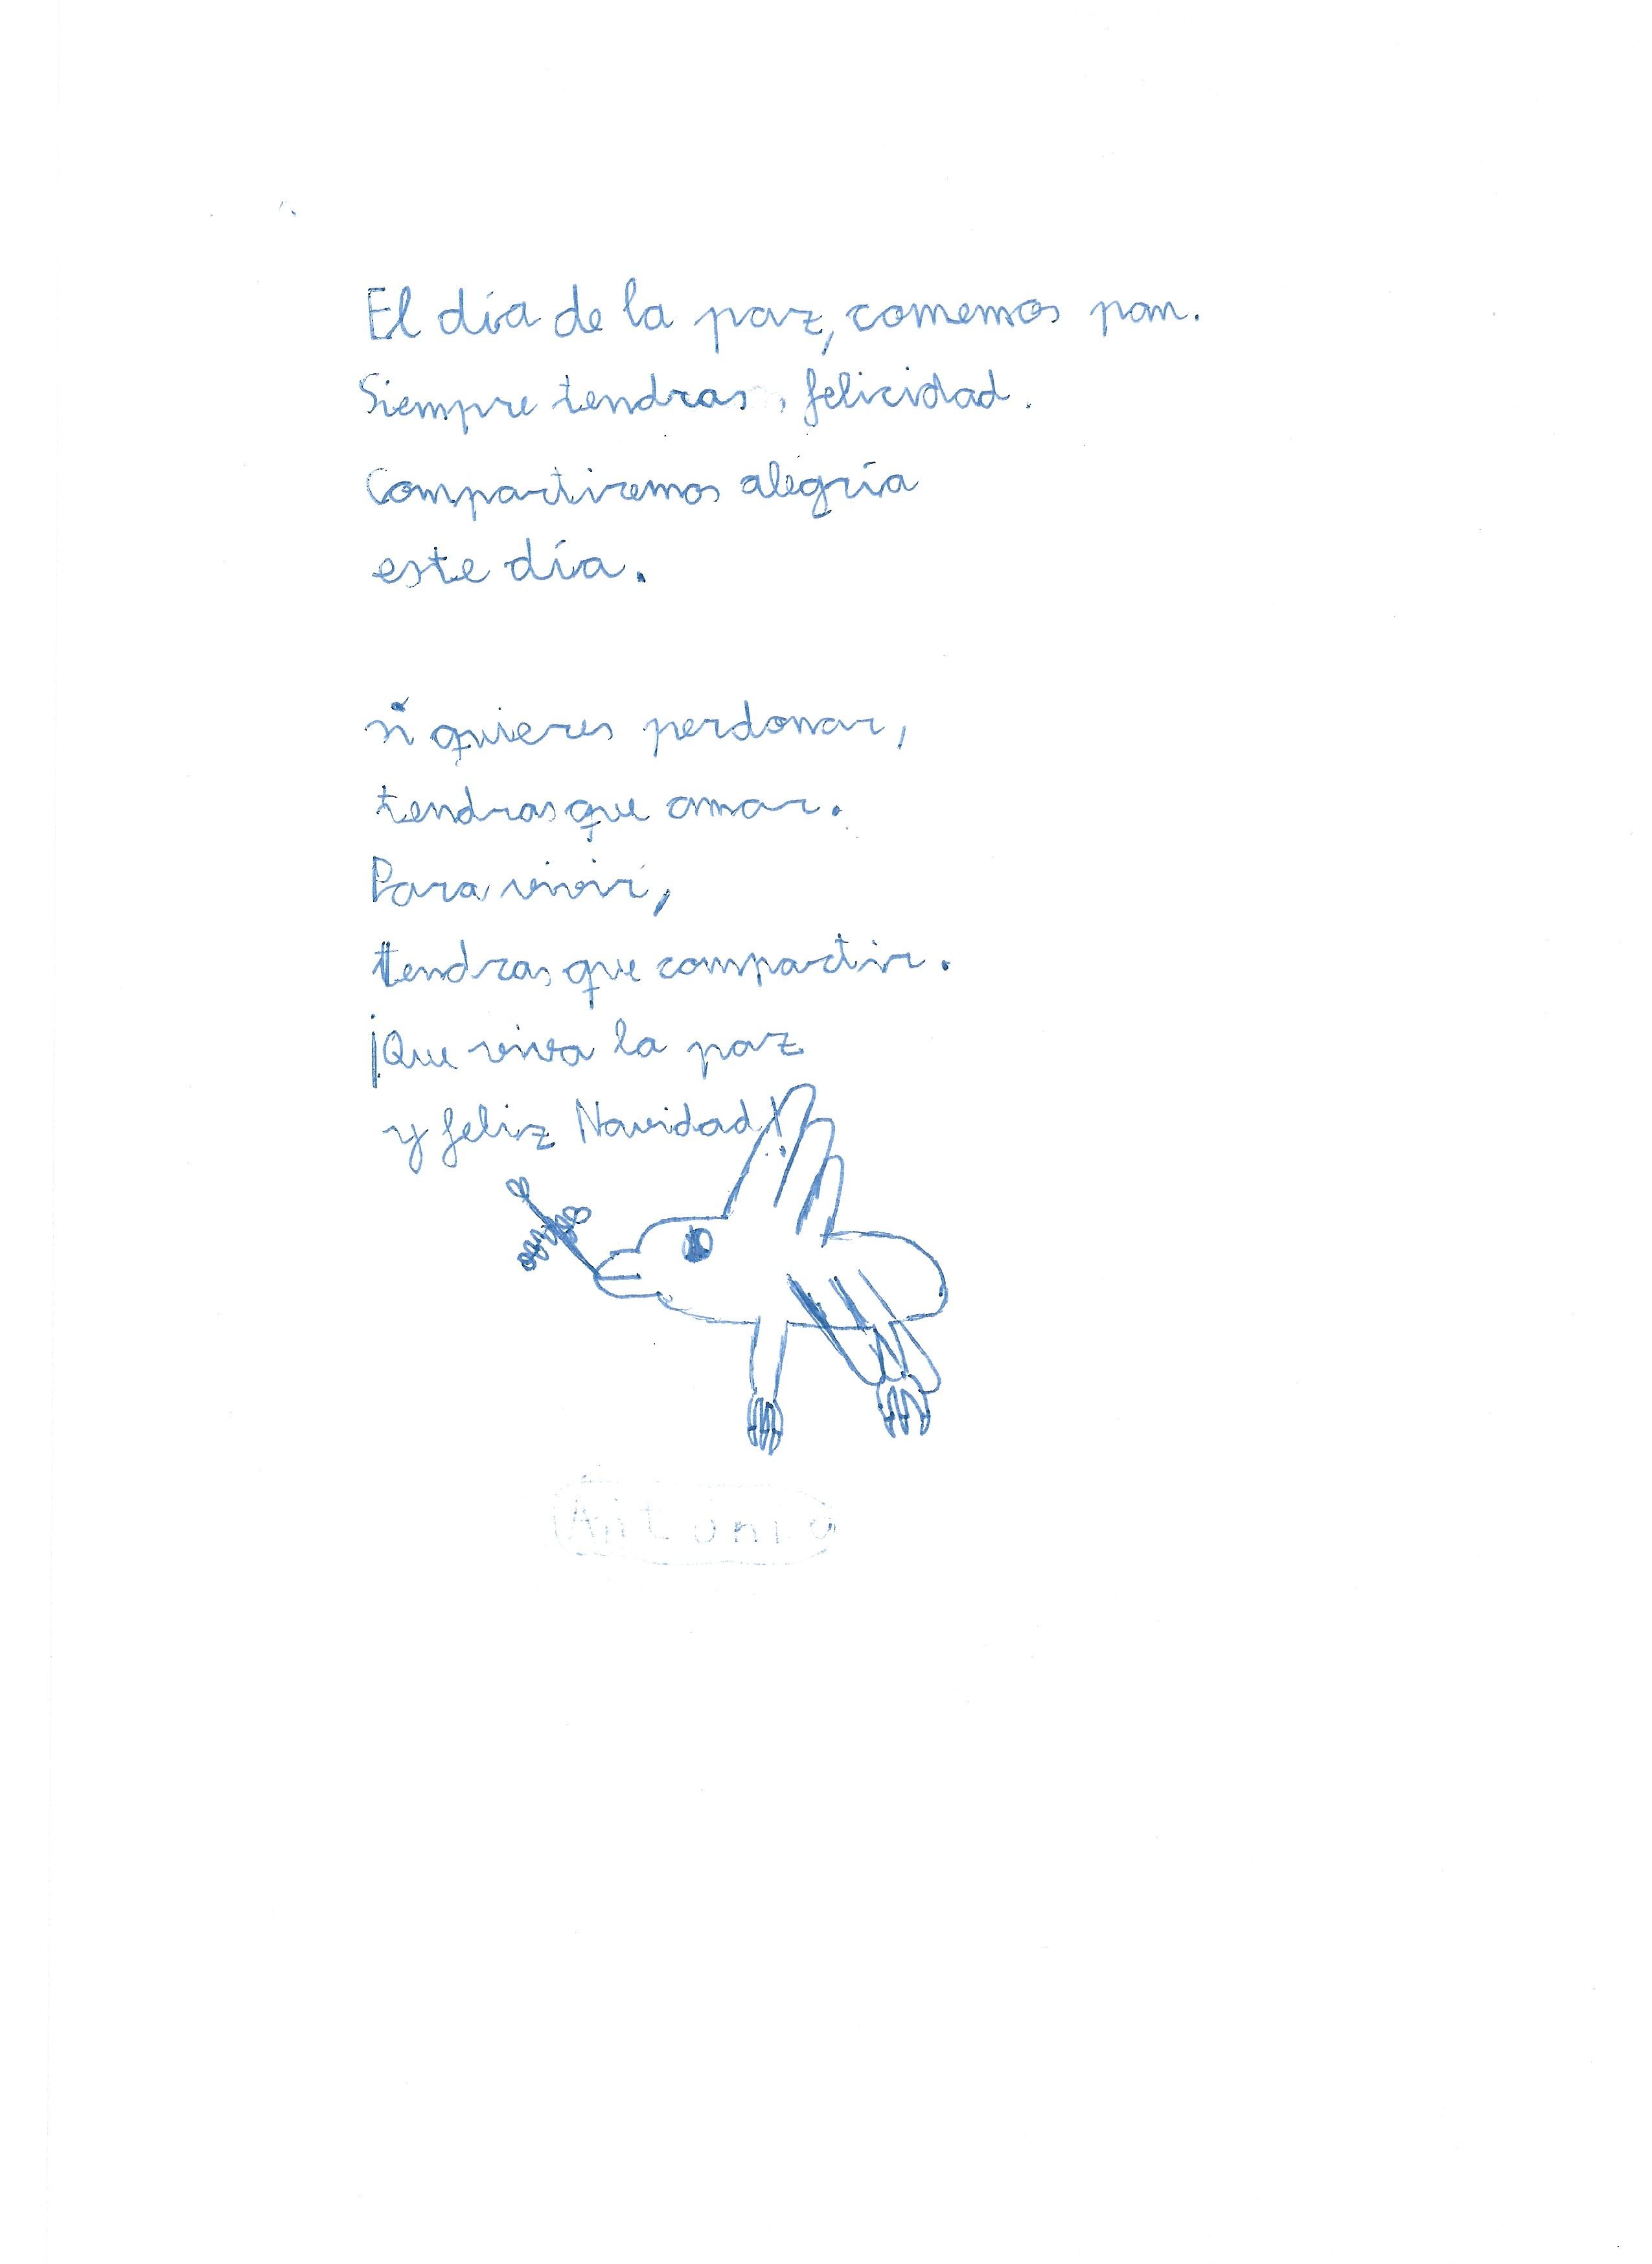 El día de la paz, comemos pan.
Siempre tendras, felicidad.
Compartiremos alegría
este día.
si quieres perdonar,
tendras que amar.
Para vivir,
tendras que compartir.
¡Que viva la paz
y feliz Navidad!
Antonio